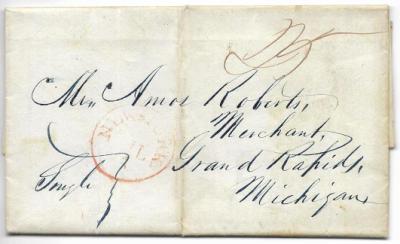 25
Mr. Amos Roberts,
Merchant,
Grand Rapids,
Single
Michigan